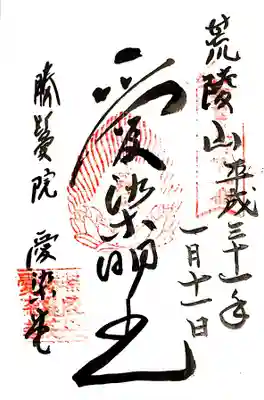 荒陵山
平成三十一年
一月十一日
愛染明王
勝鬘院 愛染堂